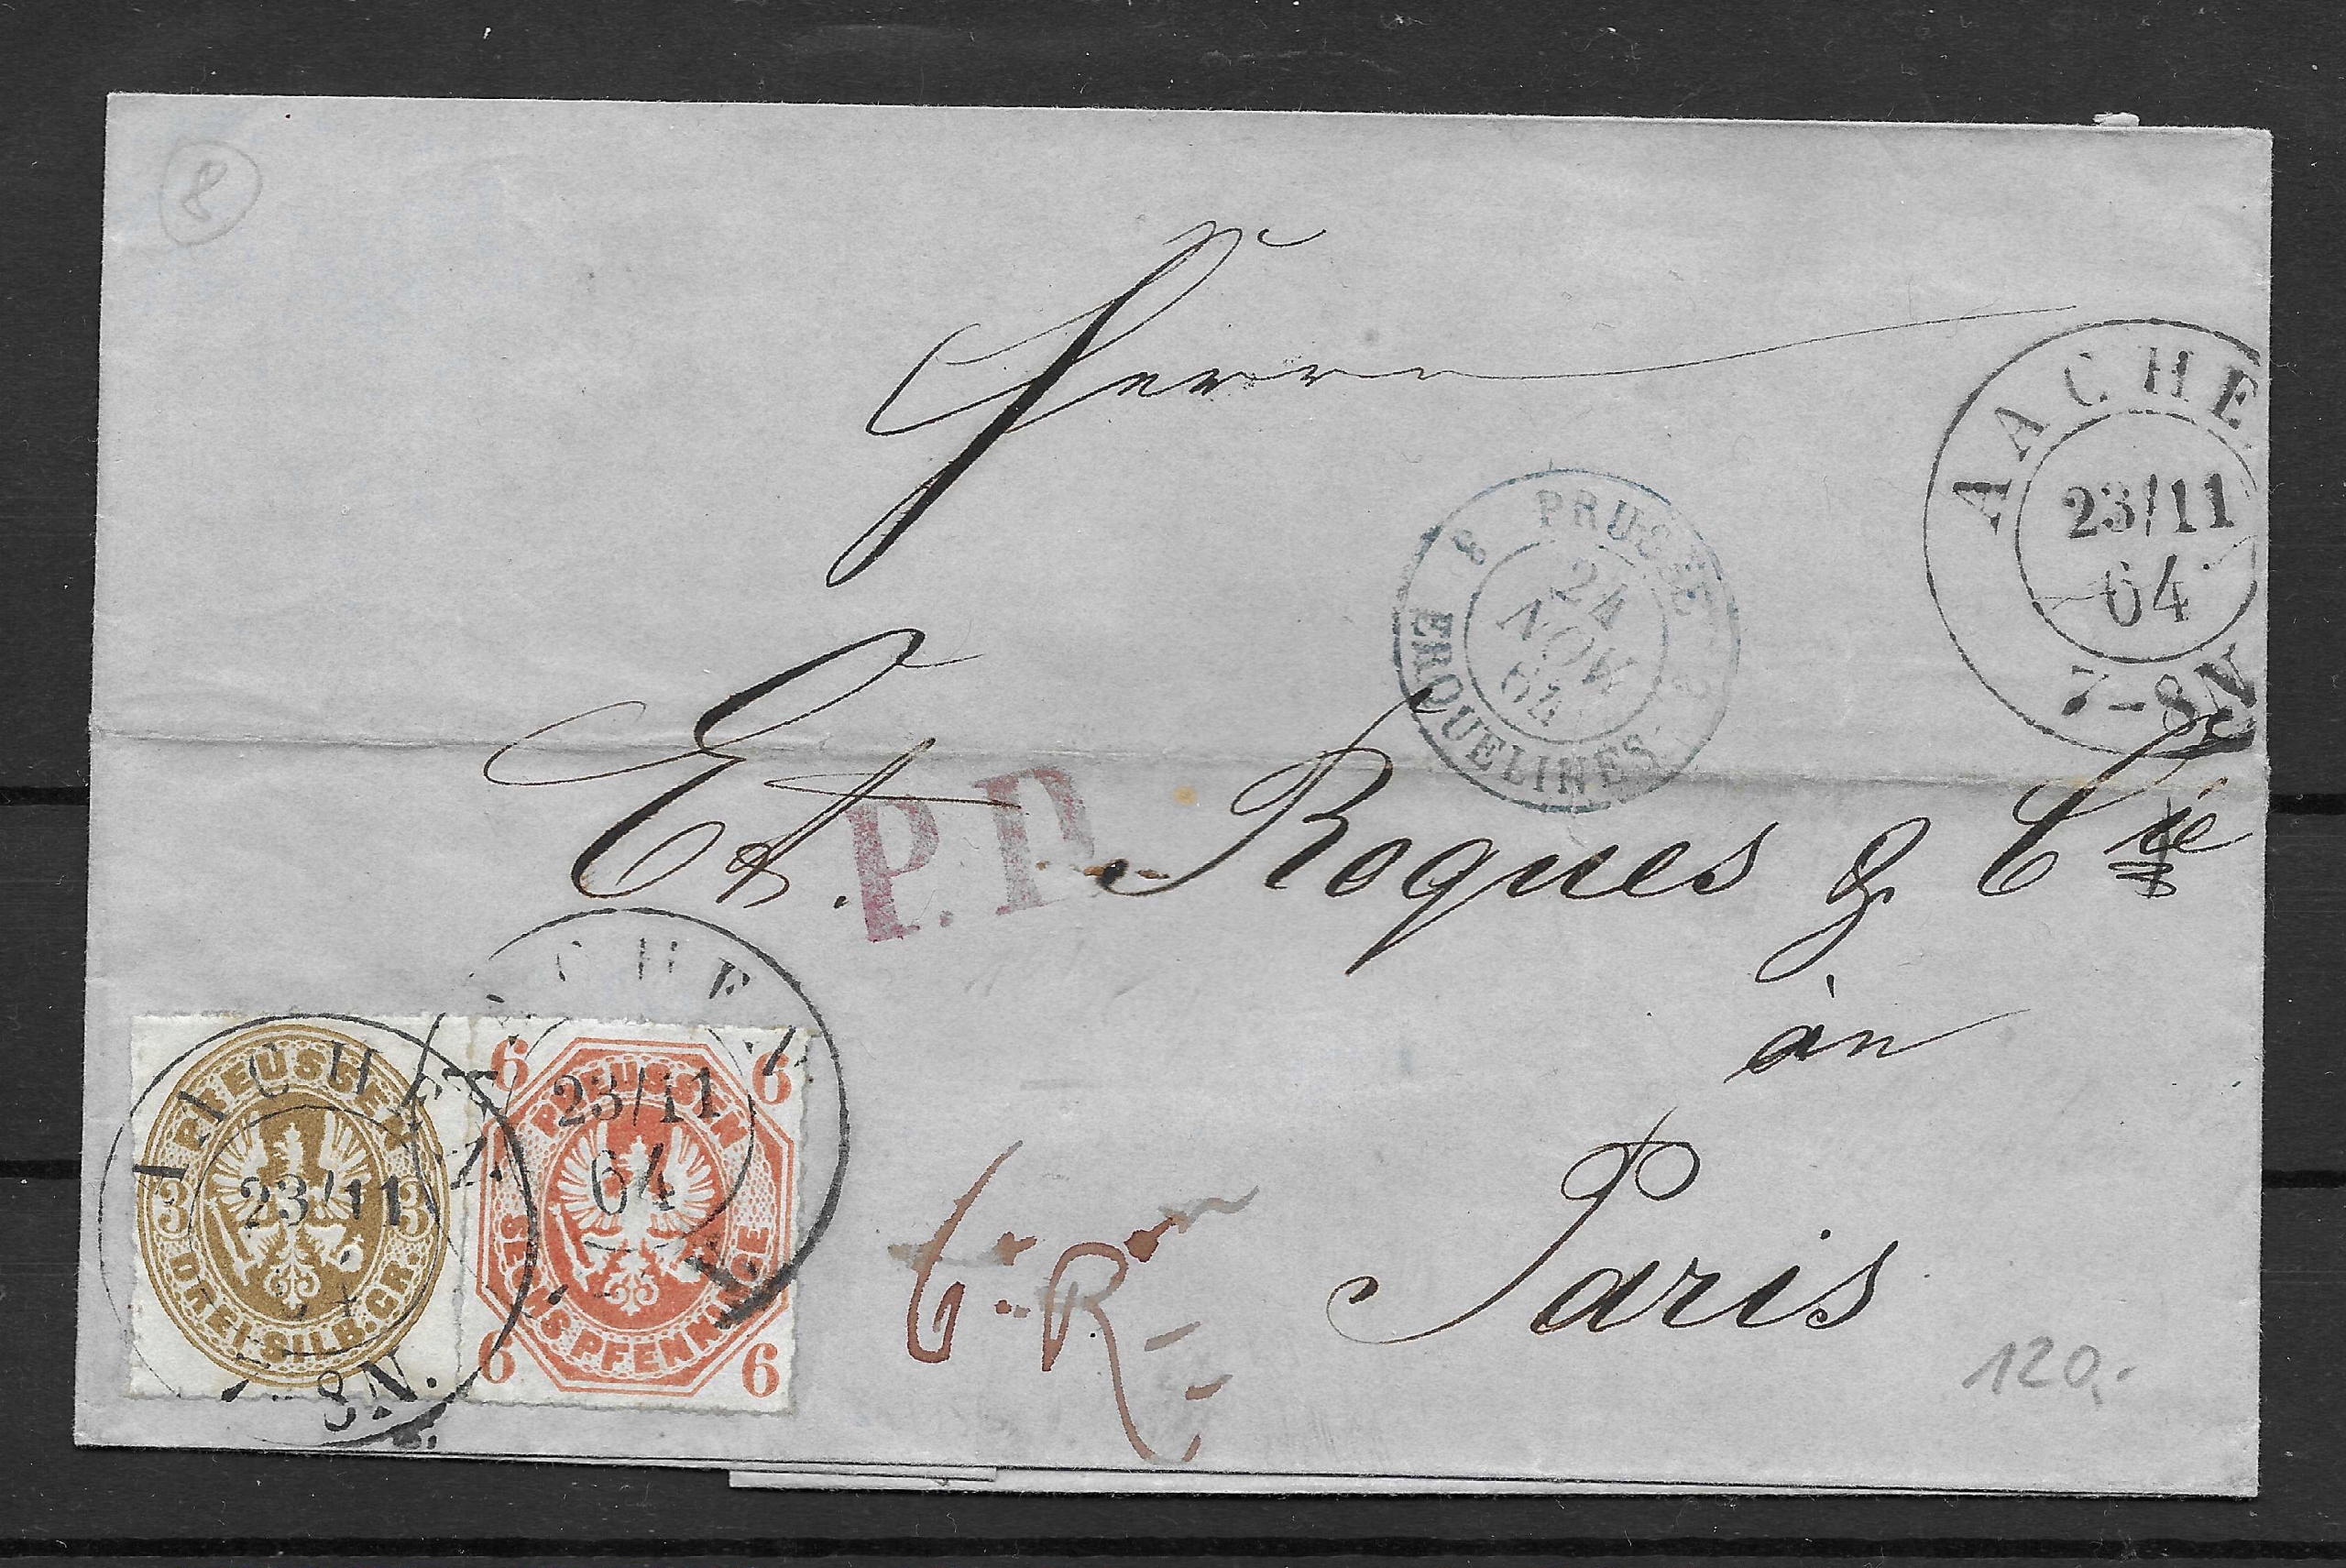 8
Herrn
AACHE
23/11
64
7-8N
8 PRUSSE
24
NOV.
64
ERQUELINES
Et. Roques & Cie
P.D.
àn
Paris
AACHEN
23/11
64
AACHEN
23/11
8N.
PREUSSEN
3 3
DREI SILB.GR.
6 6
PREUSSEN
SECHS PFENNINGE
6 6
120,-